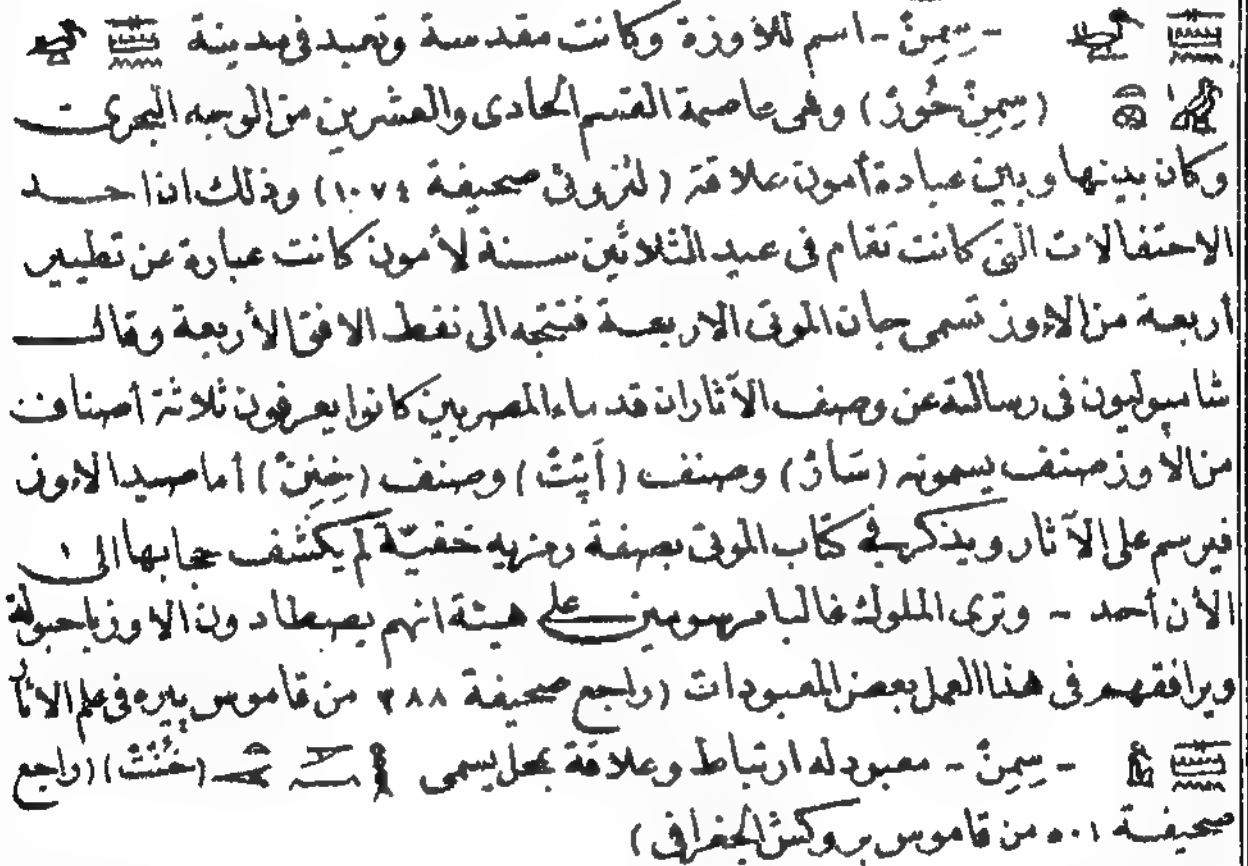 - سِمِنْ - اسم للاوزة وكانت مقدسة وتعبد فى مدينة
(سِمِنْ حُورْ) وهى عاصمة القسم الحادى والعشرين من الوجه البحرى
وكان بينها وبين عبادة أمون علاقة (لنزونى صحيفة ١٠٧٤) وذلك ان احد
الاحتفالات التى كانت تقام فى عيد الثلاثين سنة لأمون كانت عبارة عن تطيير
أربعة من الاوز تسمى جان الموتى الاربعة فتتجه الى نقط الافق الأربعة وقال
شامبوليون فى رسالته عن وصف الآثار ان قدماء المصريين كانوا يعرفون ثلاثة أصناف
من الأوز صنف يسمونه (سَارْ) وصنف (أَپْتْ) وصنف (خِنِنْ) أما صيد الاوز
فيرسم على الآثار ويذكر فى كتاب الموتى بصفة رمزيه خفيّة لم يكشف حجابها الى
الأن أحد - وترى الملوك غالبا مرسومين على هيئة انهم يصطادون الاوز باحبولة
ويرافقهم فى هذا العمل بعض المعبودات (راجع صحيفة ٣٨٨ من قاموس پيره فى علم الاثار
- سِمِنْ - معبود له ارتباط وعلاقة بمحل يسمى (خُنْتْ) (راجع
صحيفة ٥٠١ من قاموس بروكش الجغرافى)